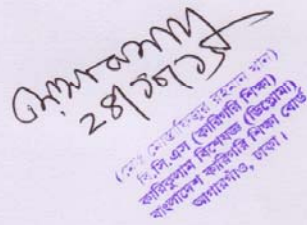 ২৪/১০/১৬
(মোঃ মোস্তাফিজুর রহমান খান)
বি.সি.এস (কারিগরি শিক্ষা)
কারিকুলাম বিশেষজ্ঞ (ডিপ্লোমা)
বাংলাদেশ কারিগরি শিক্ষা বোর্ড
আগারগাঁও, ঢাকা।